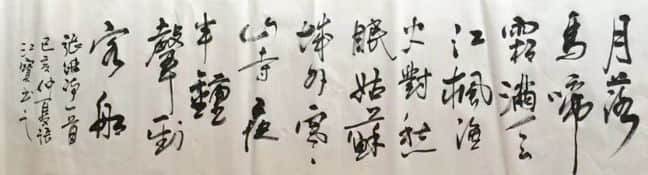 月落
烏啼
霜滿天
江楓漁
火對愁
眠姑蘇
城外寒
山寺夜
半鐘
聲到
客船
張继詩一首
己亥仲夏
江書